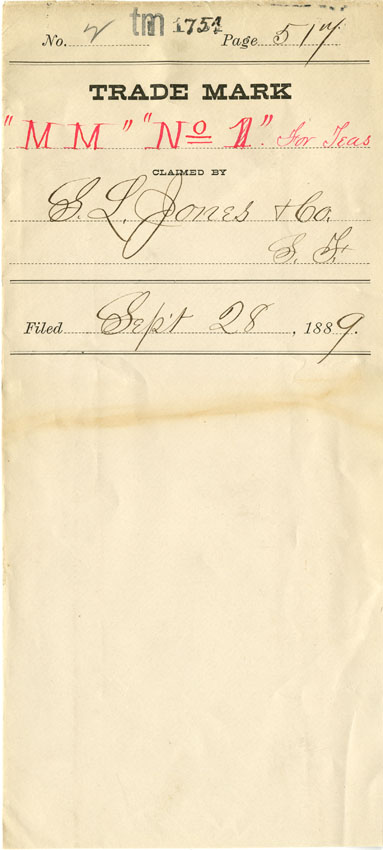 No. 2 tm 1754 Page 517
TRADE MARK
"M M" "No 1". For Teas
CLAIMED BY
S. L. Jones & Co.
S. F.
Filed Sep't 28, 1889.